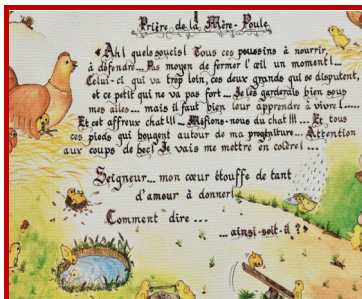 Prière de la Mère-Poule
« Ah! quels soucis! Tous ces poussins à nourrir,
à défendre... Pas moyen de fermer l'œil un moment!...
Celui-ci qui va trop loin, ces deux grands qui se disputent,
et ce petit qui ne va pas fort... Je les garderais bien sous
mes ailes... mais il faut bien leur apprendre à vivre!....
Et cet affreux chat!!! — Méfions-nous du chat!!! ... Et tous
ces pieds qui bougent autour de ma progéniture... Attention
aux coups de bec! Je vais me mettre en colère!....
Seigneur... mon cœur étouffe de tant
d'amour à donner!
Comment dire ...
... ainsi-soit-il ? »